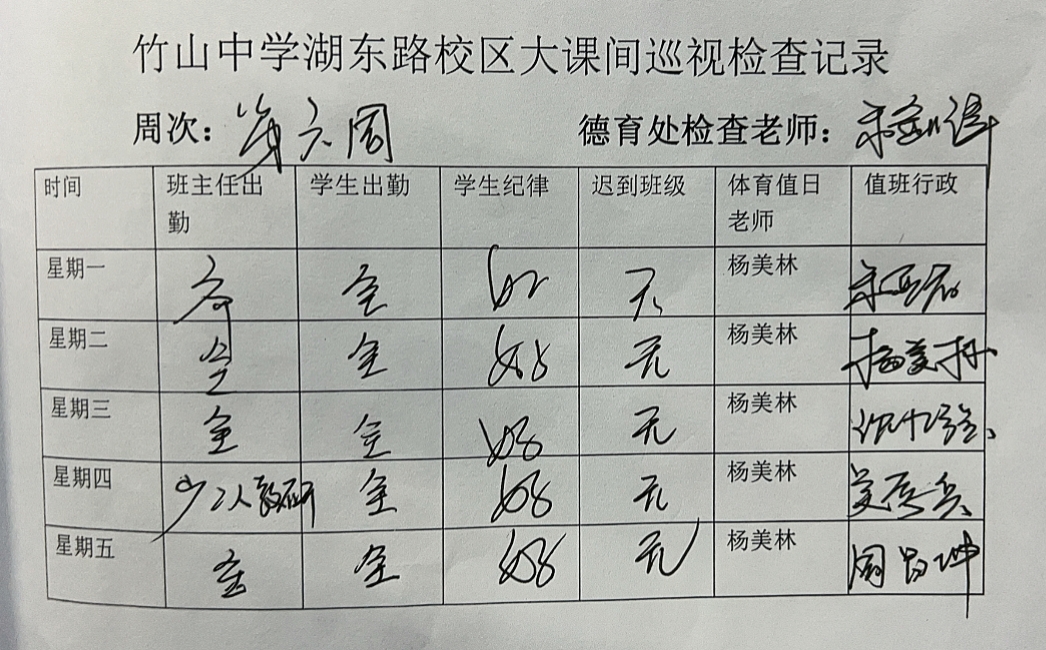 竹山中学湖东路校区大课间巡视检查记录
周次：第六周 德育处检查老师：
时间 班主任出勤 学生出勤 学生纪律 迟到班级 体育值日老师 值班行政
星期一 齐 全 好 无 杨美林
星期二 全 全 好 无 杨美林 杨美林
星期三 全 全 好 无 杨美林
星期四 少2人教研 全 好 无 杨美林
星期五 全 全 好 无 杨美林 周昌坤